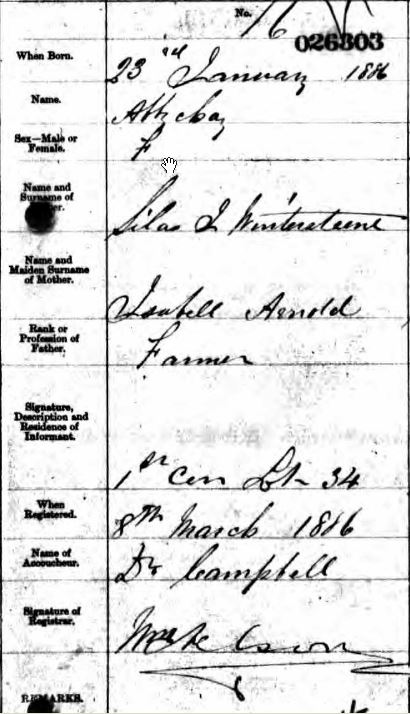 No.
026303
When Born.
23rd January 1886
Name.
Sex—Male or
Female.
F
Name and
Surname of
Silas I Wintersteene
Name and
Maiden Surname
of Mother.
Isabell Arnold
Rank or
Profession of
Father.
Farmer
Signature,
Description and
Residence of
Informant.
1st Con Lot 34
When
Registered.
8th March 1886
Name of
Accoucheur.
Dr Campbell
Signature of
Registrar.
REMARKS.